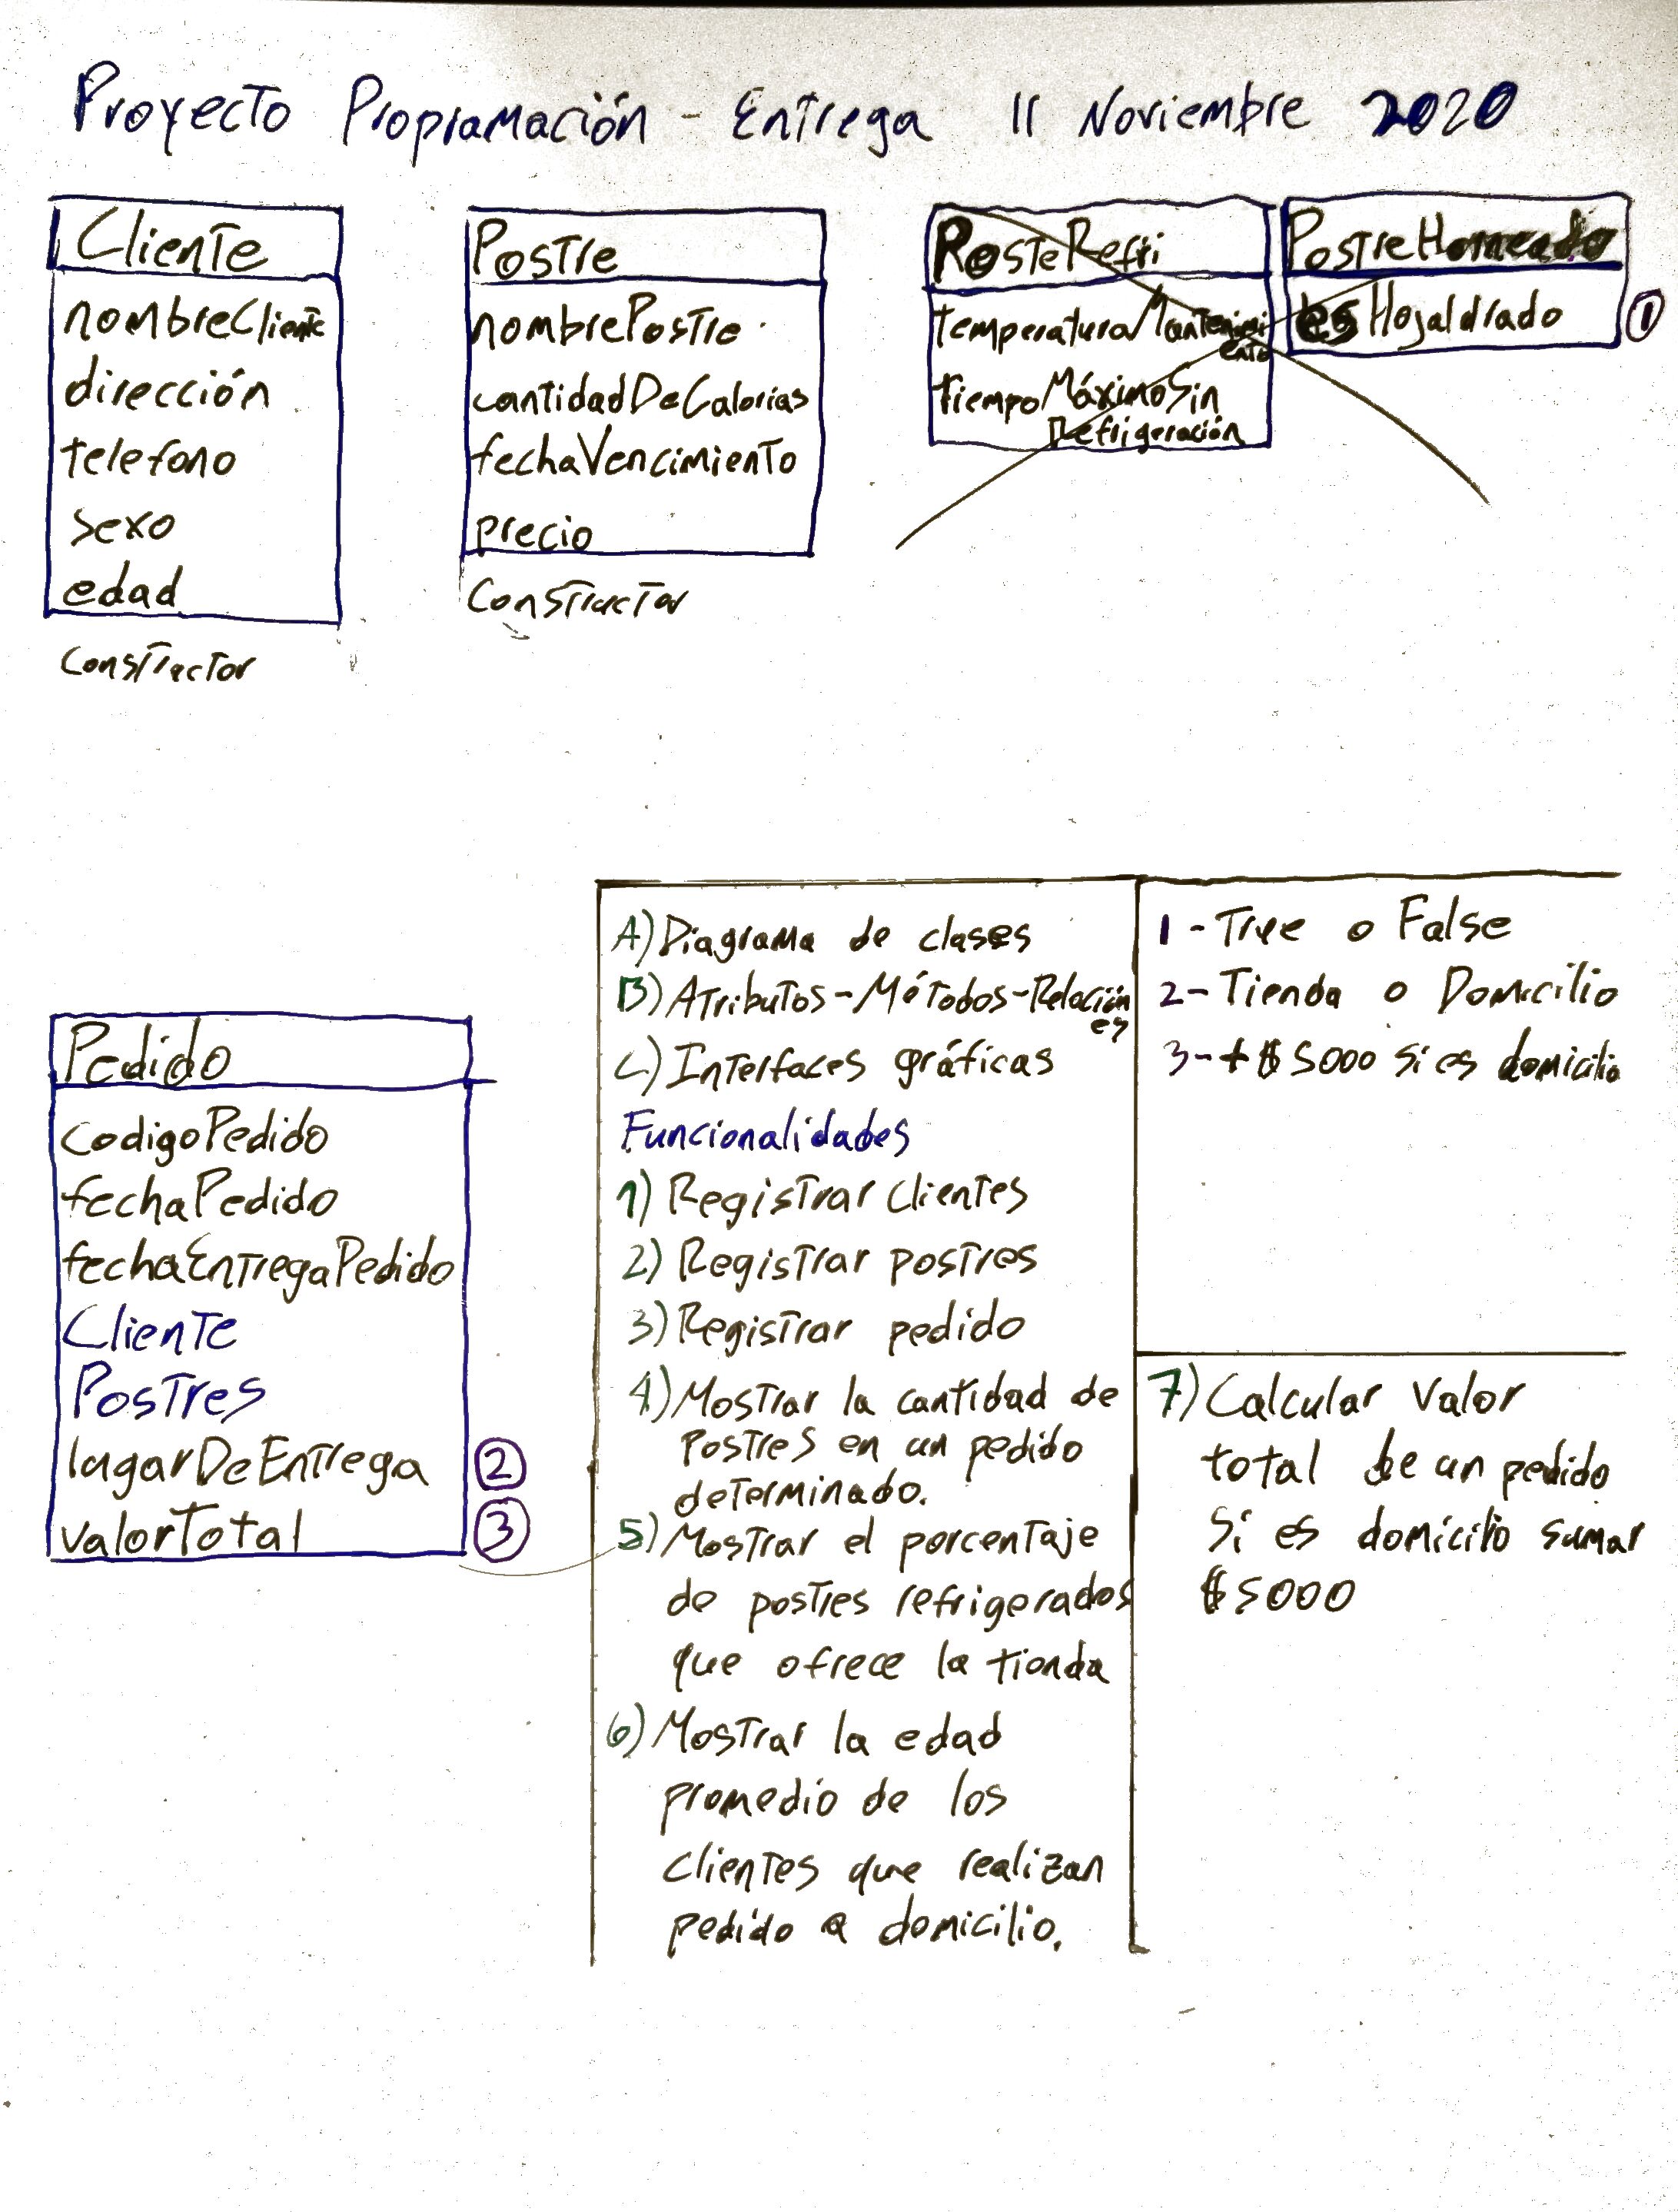 Proyecto Programación - Entrega 11 Noviembre 2020
Cliente
nombreCliente
dirección
telefono
sexo
edad
Constructor
Postre
nombrePostre
cantidadDeCalorías
fechaVencimiento
precio
Constructor
PosteRefri
temperaturaMantenimi
ento
tiempoMáximoSin
Refrigeración
PostreHorneado
esHojaldrado
1
Pedido
codigoPedido
fechaPedido
fechaEntregaPedido
Cliente
Postres
lugarDeEntrega 2
valorTotal 3
A) Diagrama de clases
B) Atributos-Métodos-Relacion
es
C) Interfaces gráficas
Funcionalidades
1) Registrar clientes
2) Registrar postres
3) Registrar pedido
4) Mostrar la cantidad de
Postres en un pedido
determinado.
5) Mostrar el porcentaje
de postres refrigerados
que ofrece la tienda
6) Mostrar la edad
promedio de los
clientes que realizan
pedido a domicilio.
1 - True o False
2 - Tienda o Domicilio
3 - + $5000 si es domicilio
7) Calcular valor
total de un pedido
Si es domicilio sumar
$5000